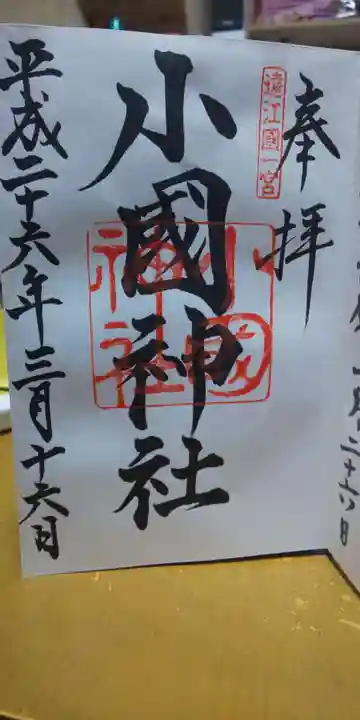 奉拝
遠江國一宮
小國神社
小國神社
平成二十六年三月十六日
二十六日